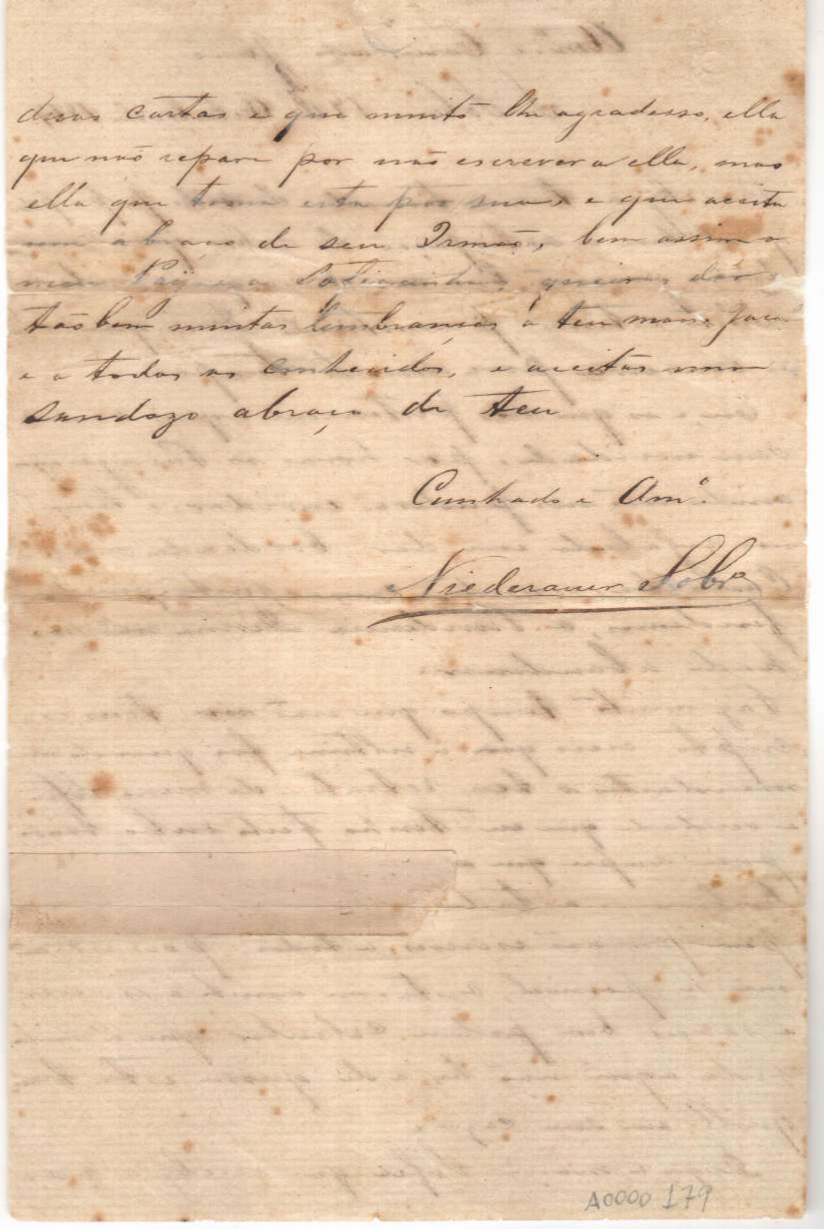 duas cartas e que muito lhe agradesso, ella
que não repare por não escrever a ella, mas
ella que tome esta por sua, e que aceita
um abraço de seu Irmão, bem assim o
meu queiras dár
tãobem muitas lembranças a teu mano
e a todos os conhecidos, e aceitas um
saudozo abraço de teu
Cunhado e Amº.
Niederauer Sobrº
A0000 179